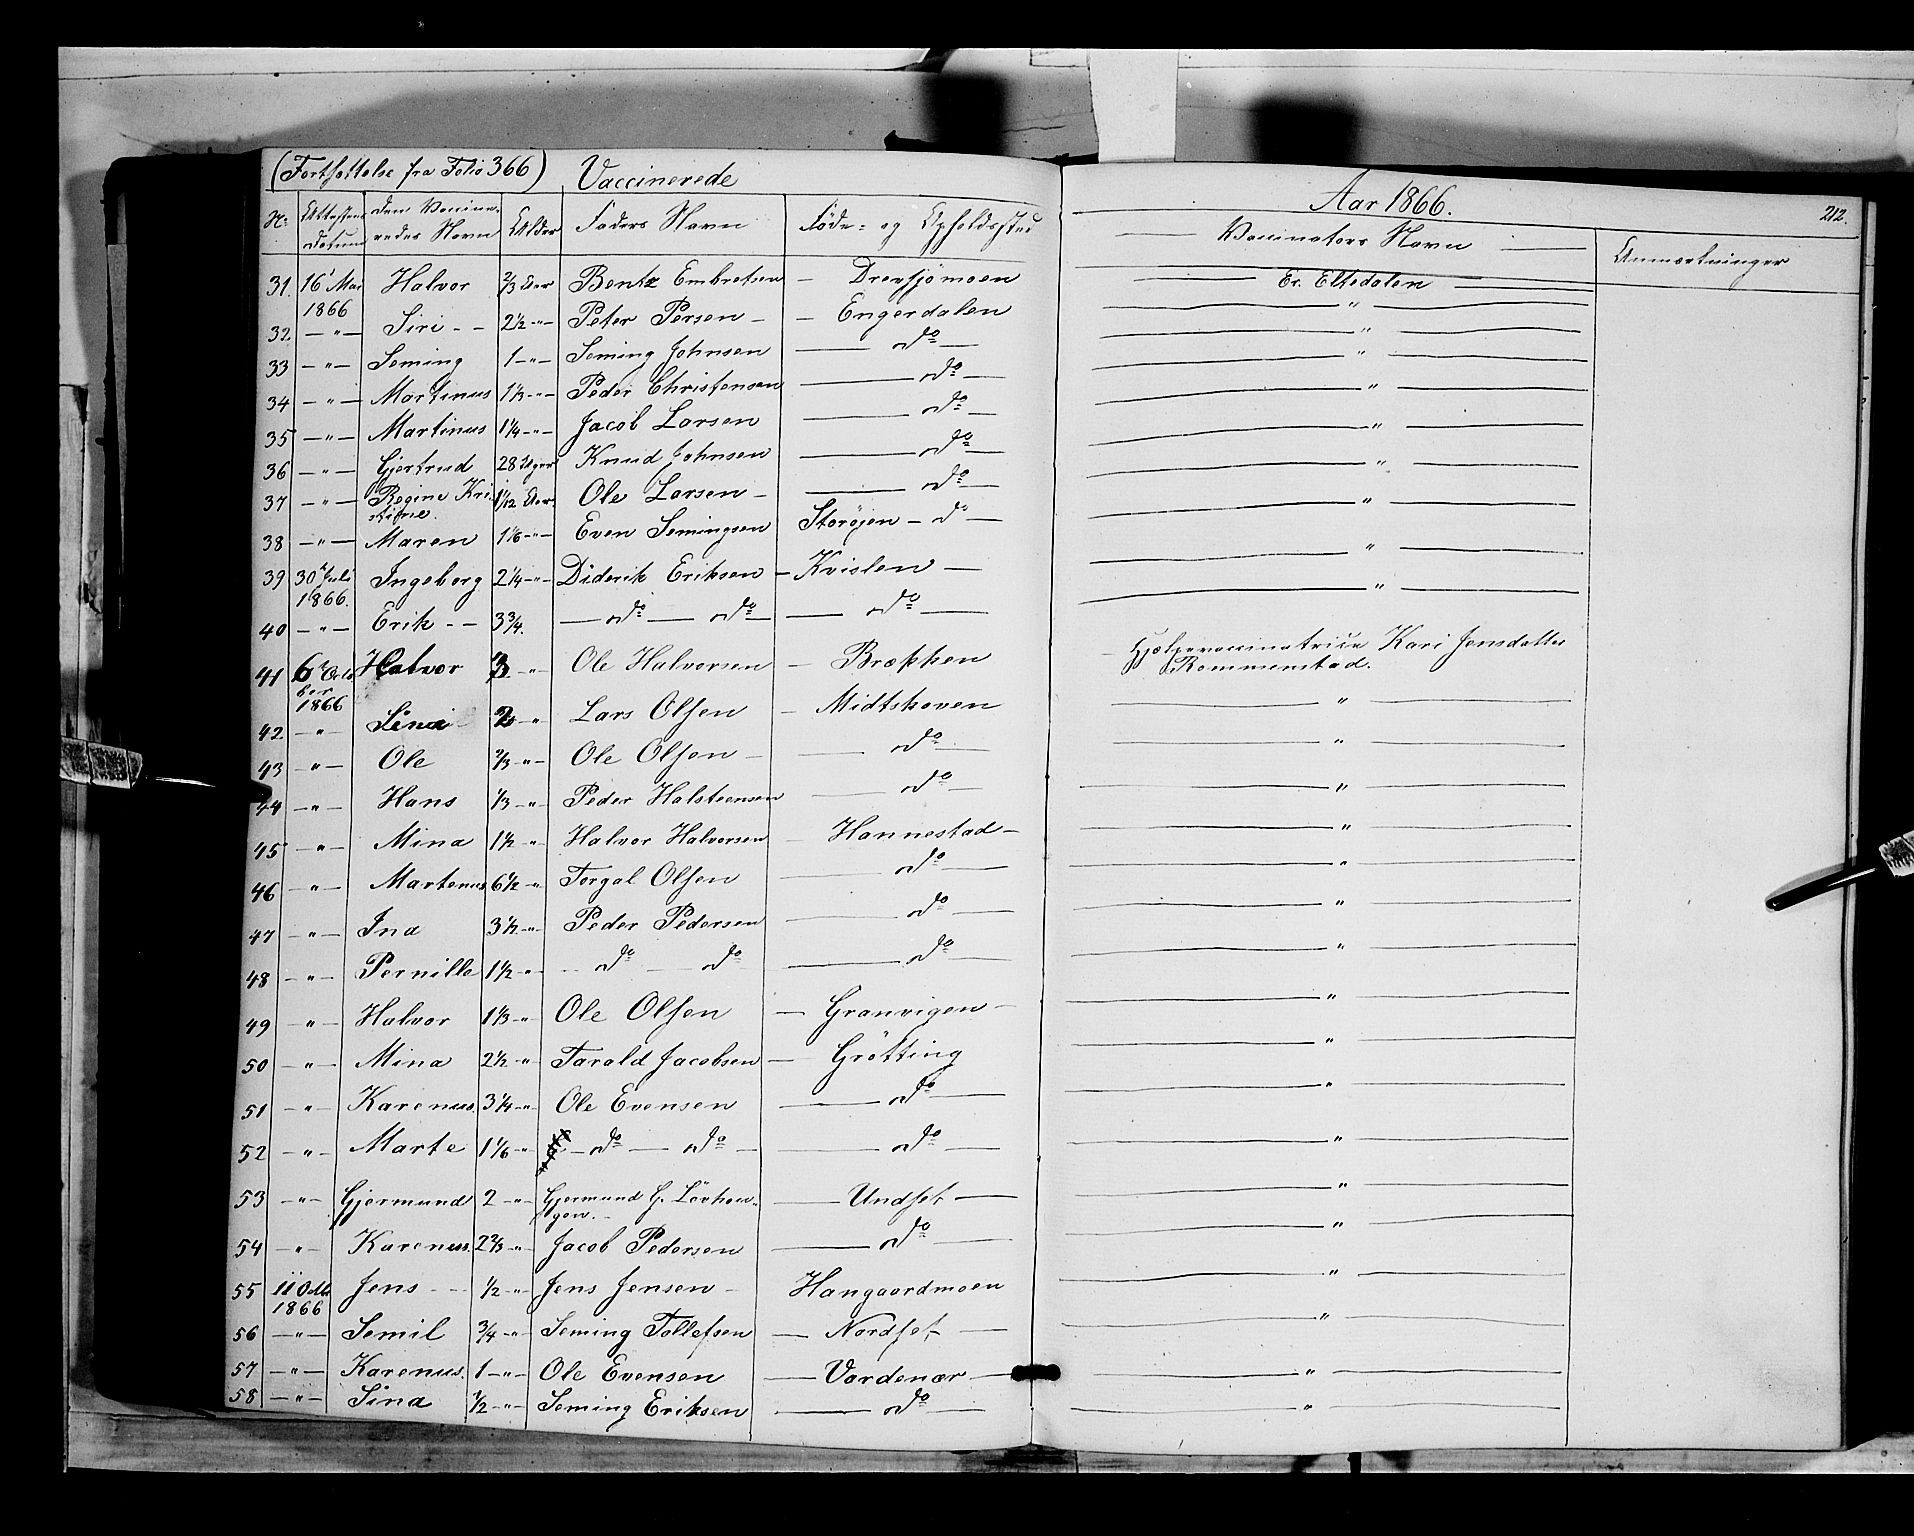 (Fortsættelse fra Folio 366) Vaccinerede
Aar 1866.
212.
Nr. Attestens Datum Den Vaccineredes Navn Alder Faders Navn Føde- og Opholdssted Vaccinators Navn Anmærkninger
31. 16' Mai 1866 Halvor 2/3 Aar Bentz Embretsen — Drevsjömoen — Er. Eltedalen —
32. — " — Siri - - 2 1/2 - " - Peter Persen — Engerdalen — " —
33 — " — Seming 1 - " - Seming Johnsen — do — " —
34 — " — Martinus 1 1/3 - " - Peder Christensen — do — " —
35 — " — Martinus 1 1/4 - " - Jacob Larsen — do — " —
36 — " — Gjertrud 28 Uger Knud Johnsen — do — " —
37 — " — Regine Kristine. 1 1/12 Aar. Ole Larsen — do — " —
38 — " — Maren 1 1/6 - " - Even Semingsen Storøjen — do — " —
39 30te Juli 1866. Ingeborg 2 1/4 - " - Diderik Eriksen — Kvislen — " —
40 — " — Erik - - 3 3/4. — do — do — do — " —
41 6te October 1866 Halvor 3 " Ole Halvorsen — Brækken — Hjælpevaccinatrice Kari Jensdatter Rommenstad.
42 — " Sina 2 - " Lars Olsen — Midtskoven — " —
43 — " — Ole 2/3 - " - Ole Olsen — do — " —
44 — " — Hans 1/3 - " Peder Halsteensen — do — " —
45 — " — Mina 1 1/2 - " Halvor Halvorsen — Hannestad — " —
46 — " — Martenus 6 1/2 - " Torgal Olsen — do — " —
47 — " — Ina 3 1/2 - " - Peder Pedersen — do — " —
48 — " — Pernille 1 1/2 - " - — do — do — do — " —
49 — " — Halvor 1 1/3 - " Ole Olsen — Granvigen — " —
50 — " — Mina 2 1/2 - " Tarald Jacobsen — Grötting — " —
51 — " Karenus. 3 1/4 - " - Ole Evensen — do — " —
52 — " Marte 1 1/6 - " — do — do — do — " —
53 — " — Gjermund 2 - " - Gjermund G. Lövhougen. — Undset — " —
54 — " — Karenus. 2 2/3 - " Jacob Pedersen — do — " —
55 11 Octbr 1866 Jens - - 1/2 - " Jens Jensen — Hangaardmoen — " —
56 — " — Semil 3/4 - " Seming Tollefsen — Nordset — " —
57 — " — Karenus. 1 - " - Ole Evensen — Vardenær — " —
58 — " — Sina 1/2 - " - Seming Eriksen — do — " —